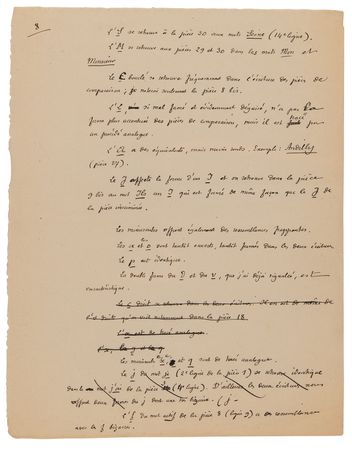 8
L'I se retrouve à la pièce 30 aux mots (14e ligne).
L'M se retrouve aux pièces 29 et 30 dans les mots Mon et
Monsieur
Le C bouclé se retrouve fréquemment dans l'écriture des pièces de
comparaison ; je relève seulement la pièce 8 bis.
L'L si mal formé et évidemment déguisé, n'a pas la
forme plus accentuée des pièces de comparaison, mais il est tracé par
un procédé analogue.
L'A a des équivalents, mais moins nets. Exemple : Andilly
(pièce 27).
Le J affecte la forme d'un I et on retrouve dans la pièce
9 bis au mot Ils un I qui est formé de même façon que le J de
la pièce incriminée.
Les minuscules offrent également des ressemblances frappantes.
Les a et o sont tantôt ouverts, tantôt fermés dans les deux écritures
Le p est identique.
La double forme du et du v, que j'ai déjà signalée, est
caractéristique.
Le droit se retrouve dans les deux écritures. Il en est de même de
l's droit qu'on voit notamment dans la pièce 18
L'x est de tracé analogue.
Les minuscules et q sont de tracé analogue.
Le j du mot (2e ligne de la pièce 1) se retrouve identique
dans le mot j'ai de la pièce (4e ligne). D'ailleurs les deux écritures nous
offrent deux formes du j dont une très bizarre.
L'f du mot actif de la pièce 8 (ligne 9) a ressemblance
avec le f bizarre.